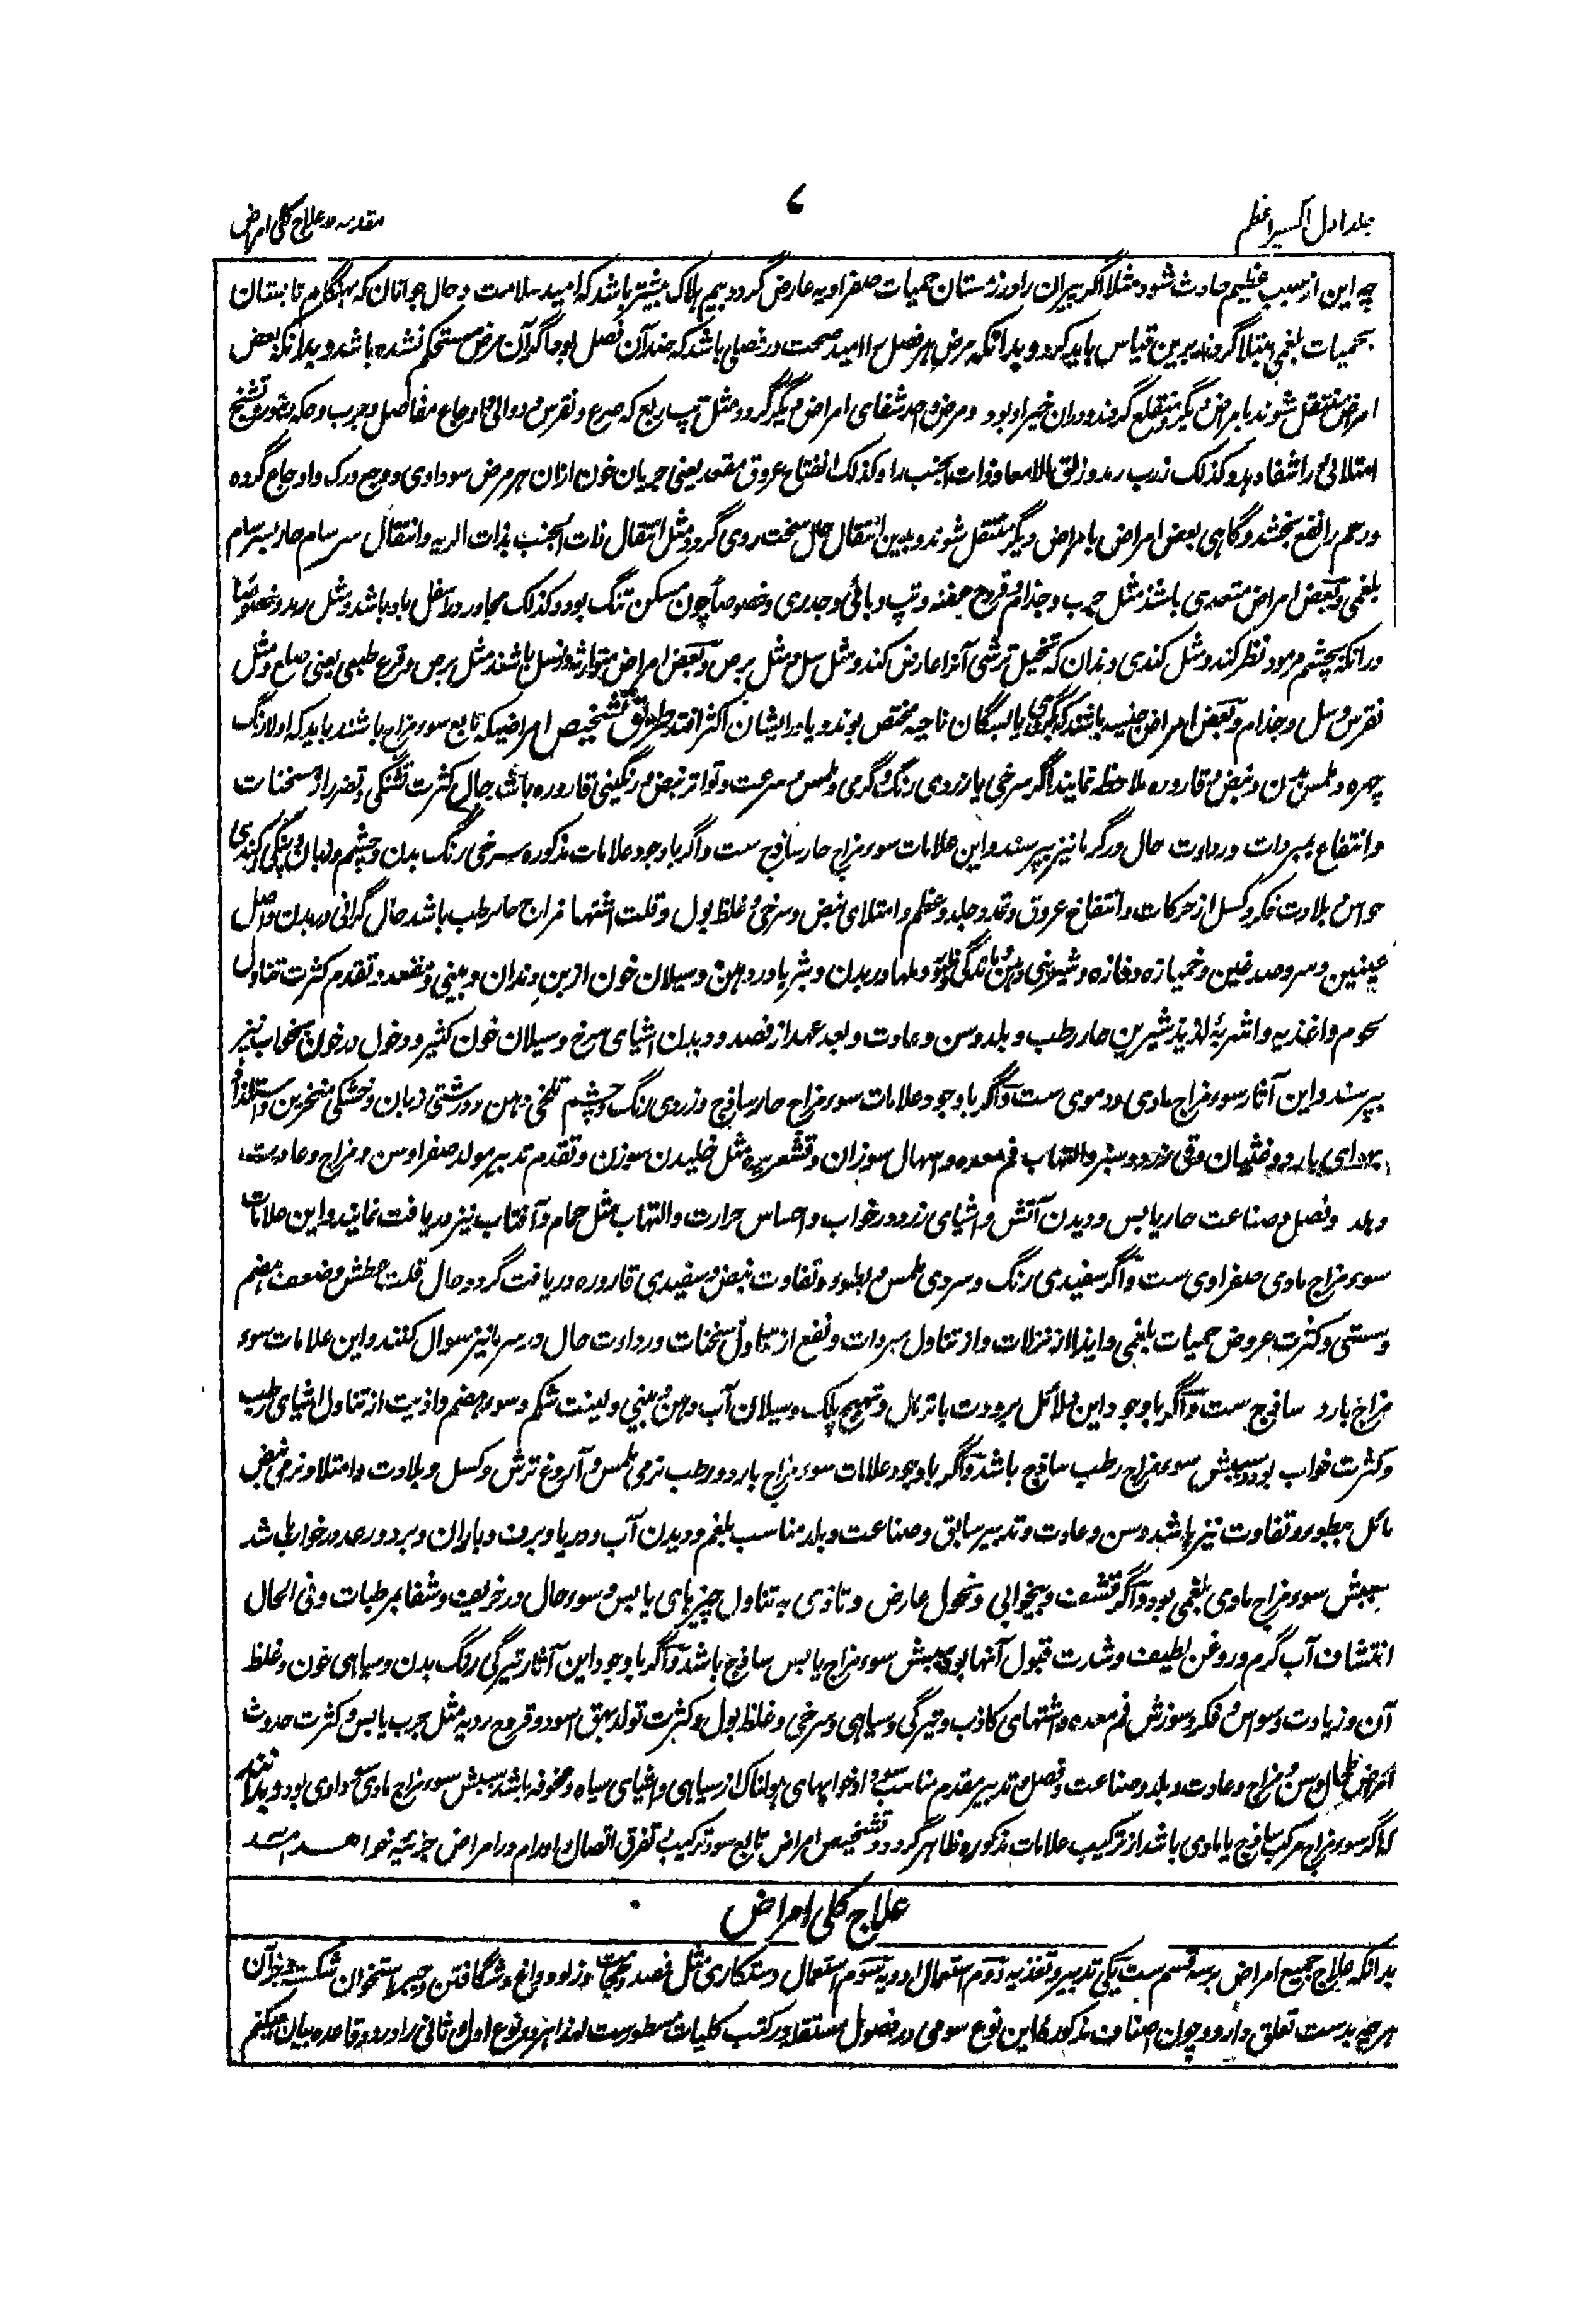 جلد اول اکسیر اعظم
۷
مقدمه در علاج کلی امراض
چه این از سبب عظیم حادث شود مثلا اگر پیران را در زمستان حمیات صفراویه عارض گردد بیم هلاک بیشتر باشد که امید سلامت و حال جوانان که بهنگام تابستان
بحمیات بلغمی مبتلا گردند برین قیاس باید کرد و بدانکه مرض هر فصل را امید صحت در فصلی باشد که ضد آن فصل بود اگر آن مرض مستحکم نشده باشد و بدانکه بعض
امراض منتقل شوند بامراض دیگر و منقلع گردند و دران خیر او بود و مرض واحد شفای امراض دیگر گردد مثل تپ ربع که صرع و نقرس و دوالی و اوجاع مفاصل و جرب و حکه و بثور و تشنج
امتلائی را شفا دهد و کذلک ذرب رمد و زلق الامعا و ذات الجنب را و کذلک انفتاح عروق مقعد یعنی جریان خون ازان هر مرض سوداوی و وجع ورک و اوجاع گرده
و رحم را نفع بخشد و گاهی بعض امراض بامراض دیگر منتقل شوند و بدین انتقال حال سخت روی گردد مثل انتقال ذات الجنب بذات الریه و انتقال سرسام حار بسرسام
بلغمی و بعض امراض متعدی باشند مثل جرب و جذام و قروح عفنه و تپ وبائی و جدری و خصوصاً چون مسکن تنگ بود و کذلک مجاور در اسفل باد باشد و مثل رمد و خصوصاً
در آنکه بچشم مرمود نظر کند و مثل کندی دندان که تخیل ترشی آنرا عارض کند و مثل سل و مثل برص و بعض امراض متوارثه در نسل باشند مثل برص و قرع طبیعی یعنی صلع و مثل
نقرس و سل و جذام و بعض امراض جنسیه باشند که بگروهی یا بساکنان ناحیه مختص بوند و یا در ایشان اکثر افتد طریق تشخیص امراضیکه تابع سوءمزاج باشند باید که اولا رنگ
چهره و ملمس بدن و نبض و قاروره ملاحظه نمایند اگر سرخی یا زردی رنگ و گرمی ملمس و سرعت و تواتر نبض و رنگینی قاروره باشد حال کثرت تشنگی و تضرر از مسخنات
و انتفاع بمبردات و رداءت حال در گرما نیز بپرسند و این علامات سوءمزاج حار ساذج ست و اگر باوجود علامات مذکوره سرخی رنگ بدن و چشم و زبان و
حواس و بلادت فکر و کسل از حرکات و انتفاخ عروق و تمدد جلد و عظم و امتلای نبض و سرخی و غلظ بول و قلت اشتها و مزاج حار رطب باشد حال گرانی در بدن و اصل
عینین و سر و صدغین و خمیازه و فاژه و شیرینی دهن و ماندگی و دملها در بدن و بثرها در دهن و سیلان خون از بن دندان و بینی و مقعد و تقدم کثرت تناول
لحوم و اغذیه و اشربهٔ لذیذ شیرین حار رطب و بلد و سن و عادت و بعد عهد از فصد و دیدن اشیای سرخ و سیلان خون کثیر و دخول در خون بخواب نیز
بپرسند و این آثار سوءمزاج مادی دموی ست و اگر باوجود علامات سوءمزاج حار ساذج و زردی رنگ و چشم تلخی دهن و درشتی زبان و خشکی منخرین و استلذاذ
بهوای بارد و غثیان و قی زرد و سبز و التهاب فم معده و اسهال سوزان و قشعریره مثل خلیدن سوزن و تقدم تدبیر مولد صفرا و سن و مزاج و عادت
و بلد و فصل و صناعت حار یابس و دیدن آتش و اشیای زرد در خواب و احساس حرارت و التهاب مثل حمام و آفتاب نیز دریافت نمایند و این علامات
سوءمزاج مادی صفراوی ست و اگر سفیدی رنگ و سردی ملمس و بطوء و تفاوت نبض و سفیدی قاروره دریافت گردد حال قلت عطش و ضعف هضم
و سستی و کثرت عروض حمیات بلغمی و ایذا از نزلات و از تناول مبردات و نفع از تناول مسخنات و رداءت حال در سرما نیز سوال کنند و این علامات سوء
مزاج بارد ساذج ست و اگر باوجود این دلائل برودت با ترهل و تهبج پلک و سیلان آب دهن و بینی و لینت شکم و سوء هضم و اذیت از تناول اشیای رطب
و کثرت خواب بود سببش سوءمزاج رطب ساذج باشد و اگر باوجود علامات سوءمزاج بارد و رطب نرمی ملمس و آروغ ترش و کسل و بلادت و امتلا و نرمی نبض
مائل ببطوء و تفاوت نیز باشد و سن و عادت و تدبیر سابق و صناعت و بلد مناسب بلغم و دیدن آب و دریا و برف و باران و برد و رعد در خواب باشد
سببش سوءمزاج مادی بلغمی بود و اگر قشف و بیخوابی و نحول عارض و تاذی به تناول چیزهای یابس و سوء حال در خریف و شفا بمرطبات و فی الحال
انتشاف آب گرم و روغن لطیف و شدت قبول آنها بود سببش سوءمزاج یابس ساذج باشد و اگر باوجود این آثار تیرگی رنگ بدن و سیاهی خون و غلظ
آن و زیادت وسواس و فکر و سوزش فم معده و اشتهای کاذب و تیرگی و سیاهی و سرخی و غلظ بول و کثرت تولد بهق اسود و قروح ردیه مثل جرب یابس و کثرت حدوث
امراض طحال و سن و مزاج و عادت و بلد و صناعت و فصل و تدبیر مقدم مناسب سودا و خوابهای هولناک از سیاهی و اشیای سیاه و مخوفه باشد سببش سوءمزاج مادی سوداوی بود و بدانند
که اگر سوءمزاج مرکب ساذج یا مادی باشد از ترکیب علامات مذکوره ظاهر گردد و تشخیص امراض تابع سوء ترکیب و تفرق اتصال و اورام در امراض جزئیه خواهد آمد
علاج کلی امراض
بدانکه علاج جمیع امراض بر سه قسم ست یکی تدبیر و تغذیه دوم استعمال ادویه سوم استعمال دستکاری مثل فصد و حجامت و زلو و داغ و شگافتن و جبر استخوان شکسته و جز آن
هرچه بدست تعلق دارد و چون اصناف مذکوره این نوع سومی در فصول مستقله در کتب کلیات مسطورست لهذا هر دو نوع اول و ثانی را در دو قاعده بیان میکنم